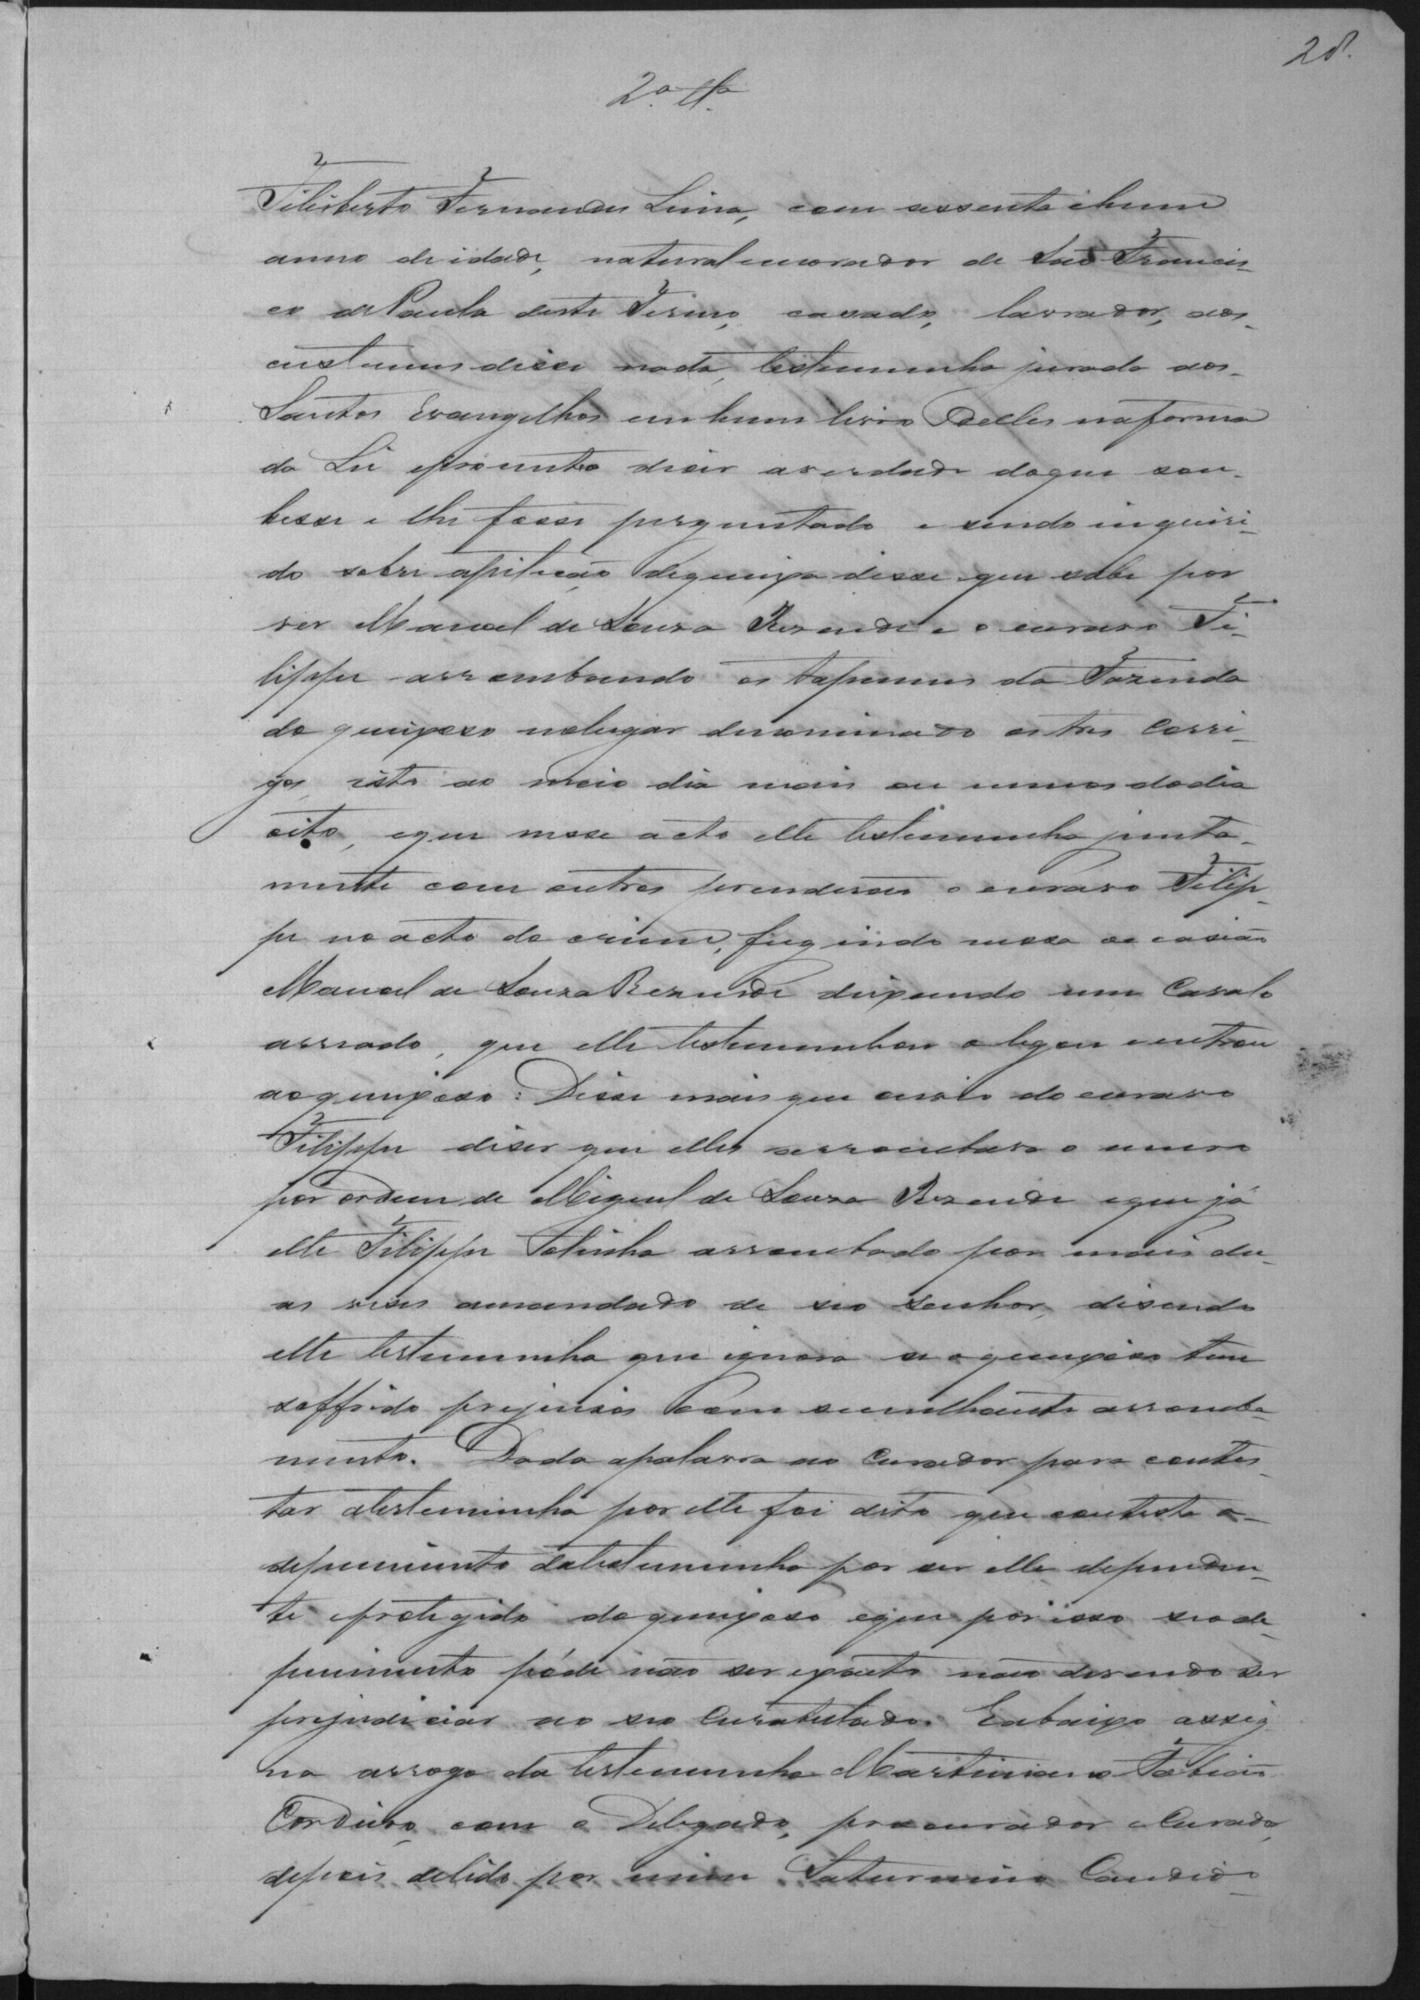 28.
2.a T.a
Feliberto Fernandes Lima, com sessenta e hum
anno de idade, natural e morador de São Francis-
co de Paula deste Termo, casado, lavrador, aos
custumes disse nada, testemunha jurada aos
Santos Evangelhos em hum livro delles na forma
da Lei e prometeo diser a verdade do que sou-
besse e lhe fosse perguntado e sendo inquiri-
do sobre a petição de queixa disse que sabe por
ver Manoel de Souza Rezende e o escravo Fe-
lippe arrombando os tapumes da Fazenda
do queixoso no lugar denominado os tres Corri-
gos isto ao meio dia mais ou menos do dia
oito, e que nesse acto elle testemunha junta-
mente com outros prenderão o escravo Felip-
pe no acto do crime, fugindo nessa occasião
Manoel de Souza Rezende deixando um Cavalo
arriado, que elle testemunhou o legou e entrou
ao queixoso: Disse mais que ouvio do escravo
Felippe diser que elles arrombava o muro
por ordem de Miguel de Souza Rezende e que já
elle Felippe tatinha arrombado por mais du-
as veses amandado de seo senhor, disendo
elle testemunha que ignora se o queixoso tem
soffrido prejuisos com semelhante arromba-
mento. Dada a palavra ao Curador para contes-
tar a testemunha por elle foi dito que contesta o
depuimento da testemunha por ser elle dependen-
te e protegido do queixoso e que por isso seo de-
puimento póde não ser exacto não devendo ser
prejudiciar ao seo Curatelado. E abaixo assig
na arrogo da testemunha Martiniano Fabião
Cordeiro, com o Delegado, procurador e Curador,
depois de lido por mim Saturnino Candido